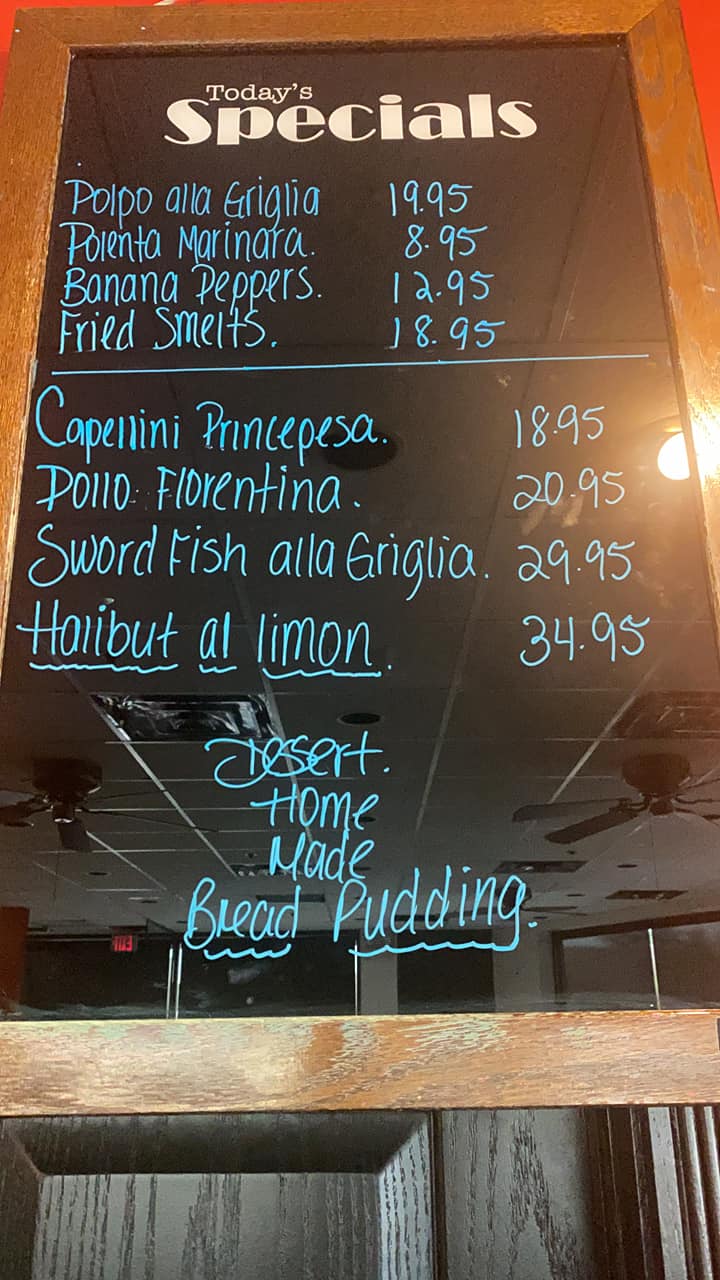 Today's
Specials
Polpo alla Griglia 19.95
Polenta Marinara. 8.95
Banana Peppers. 12.95
Fried Smelts. 18.95
Capellini Princepesa. 18.95
Pollo Florentina. 20.95
Sword Fish alla Griglia. 29.95
Halibut al limon. 34.95
Desert.
Home
Made
Bread Pudding.